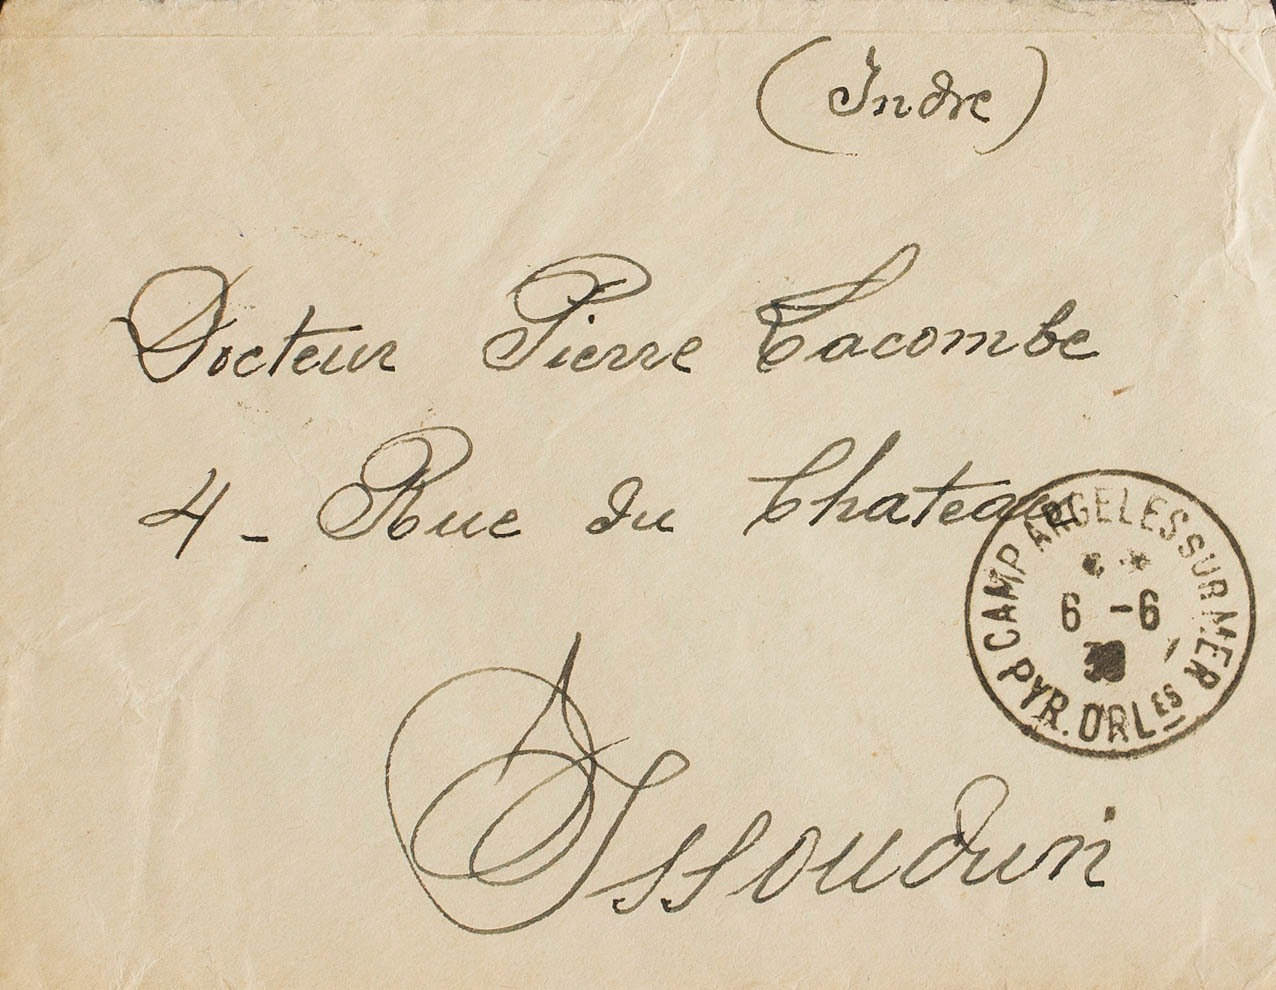 (Indre)
Docteur Pierre Lacombe
4 - Rue du Chateau
CAMP ARGELES SUR MER
6 -6
PYR. ORLES
Issoudun